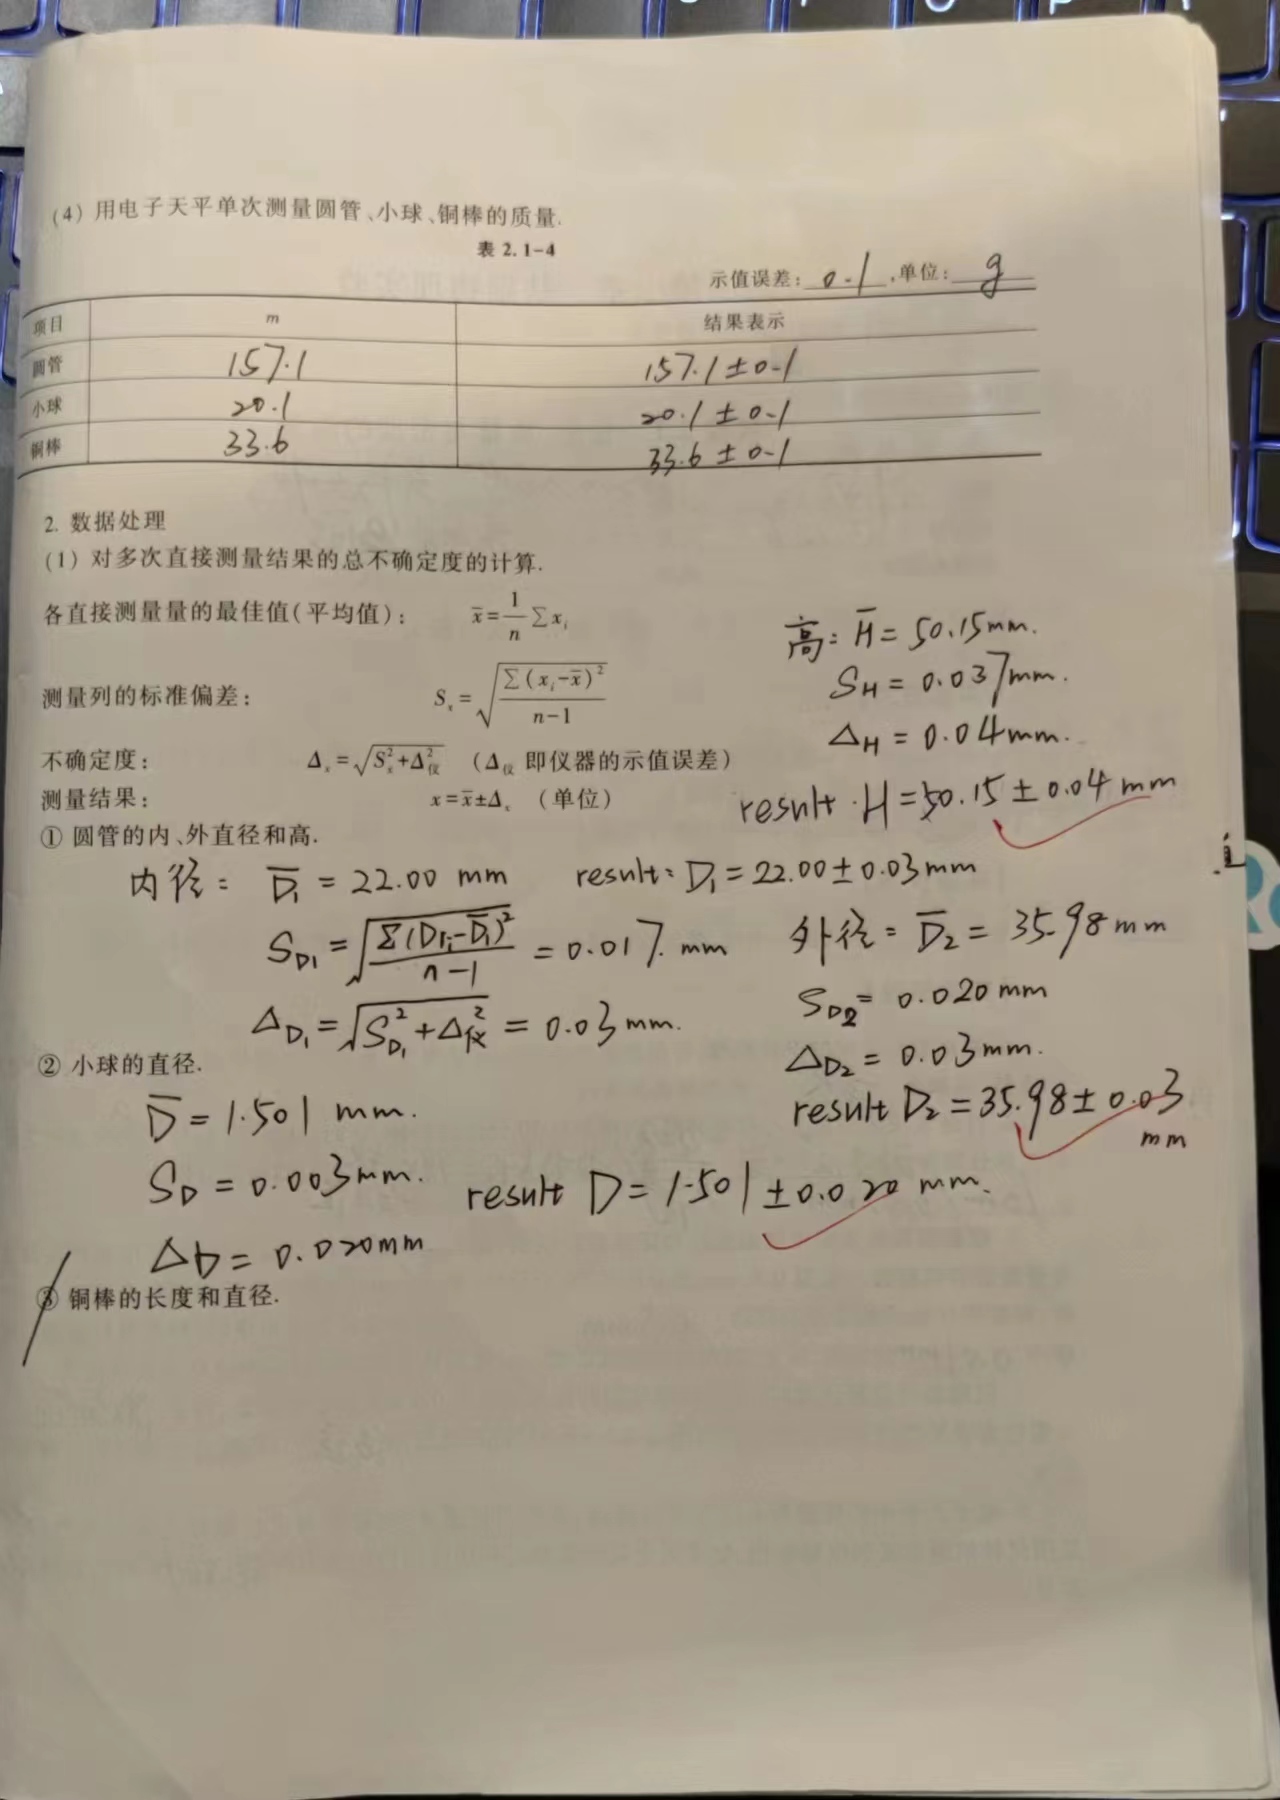 (4) 用电子天平单次测量圆管、小球、铜棒的质量.
表 2.1-4
示值误差: 0.1 ,单位: g
项目 m 结果表示
圆管 157.1 157.1±0.1
小球 20.1 20.1±0.1
铜棒 33.6 33.6±0.1
2. 数据处理
(1) 对多次直接测量结果的总不确定度的计算.
各直接测量量的最佳值(平均值): x̄=1/n ∑xᵢ
测量列的标准偏差: Sₓ=√(∑(xᵢ-x̄)²/(n-1))
不确定度: Δₓ=√(Sₓ²+Δ仪²) (Δ仪 即仪器的示值误差)
测量结果: x=x̄±Δₓ (单位)
高: H̄=50.15mm.
S_H=0.037mm.
Δ_H=0.04mm.
result. H=50.15±0.04 mm
① 圆管的内、外直径和高.
内径: D̄₁=22.00 mm result: D₁=22.00±0.03mm
S_D₁=√(Σ(D₁ᵢ-D̄₁)²/(n-1))=0.017. mm
Δ_D₁=√(S_D₁²+Δ仪²)=0.03mm.
外径: D̄₂=35.98mm
S_D₂=0.020mm
Δ_D₂=0.03mm.
result D₂=35.98±0.03
mm
② 小球的直径.
D̄=1.501 mm.
S_D=0.003mm. result D=1.501±0.020 mm.
Δ_D=0.020mm
③ 铜棒的长度和直径.